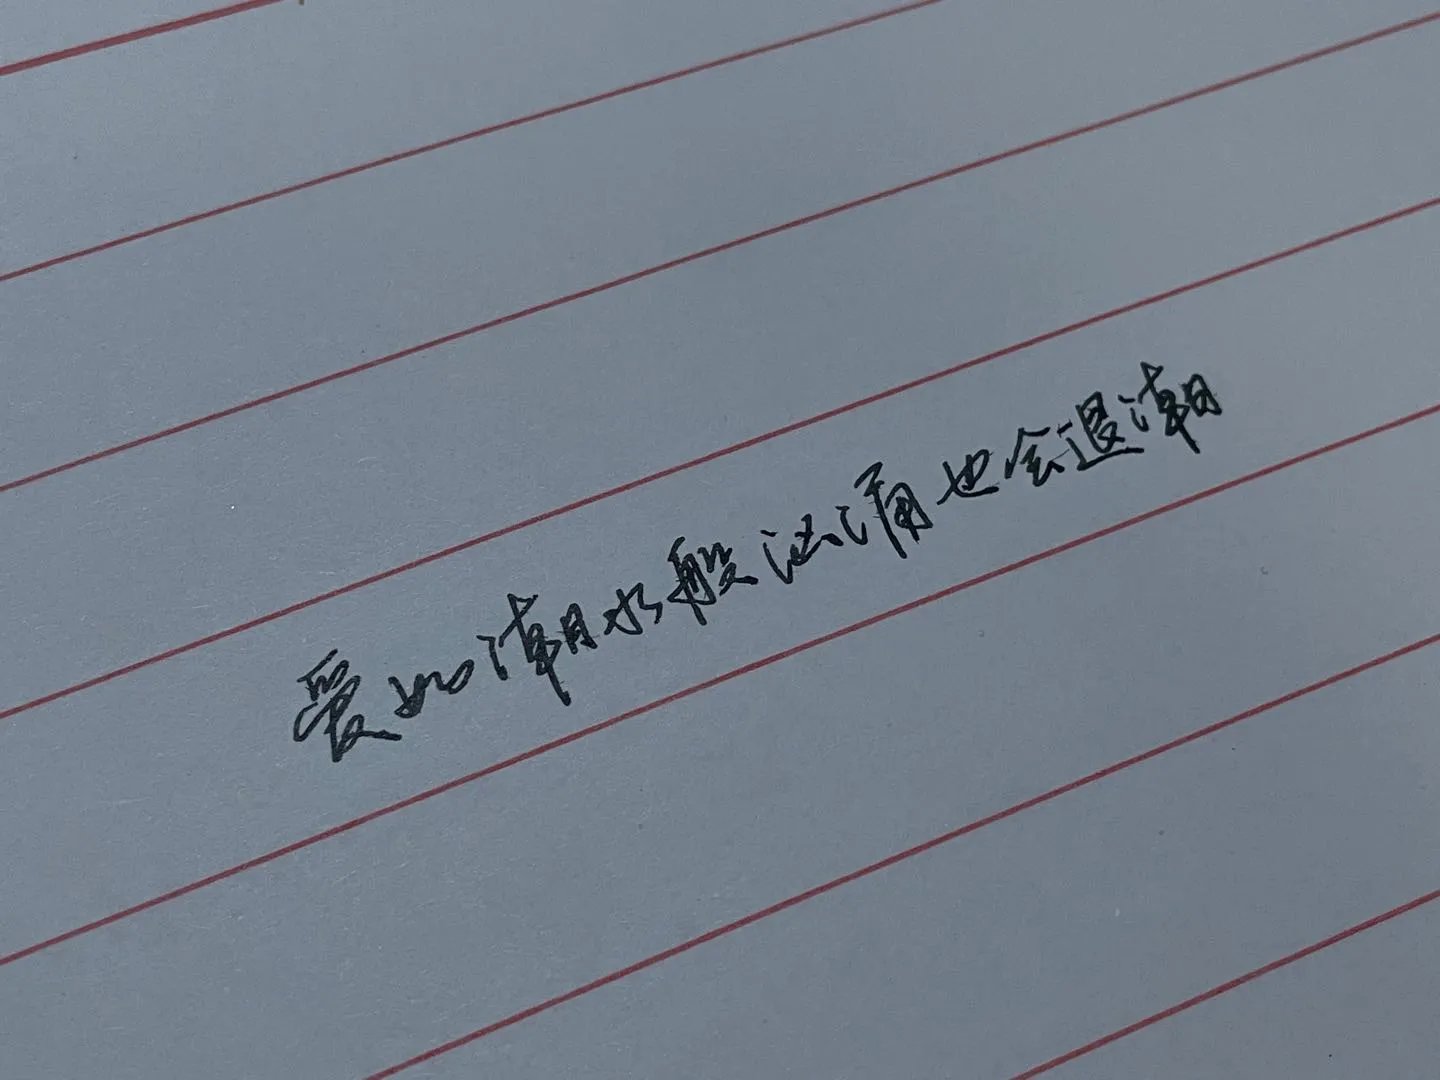 爱如潮水般汹涌也会退潮